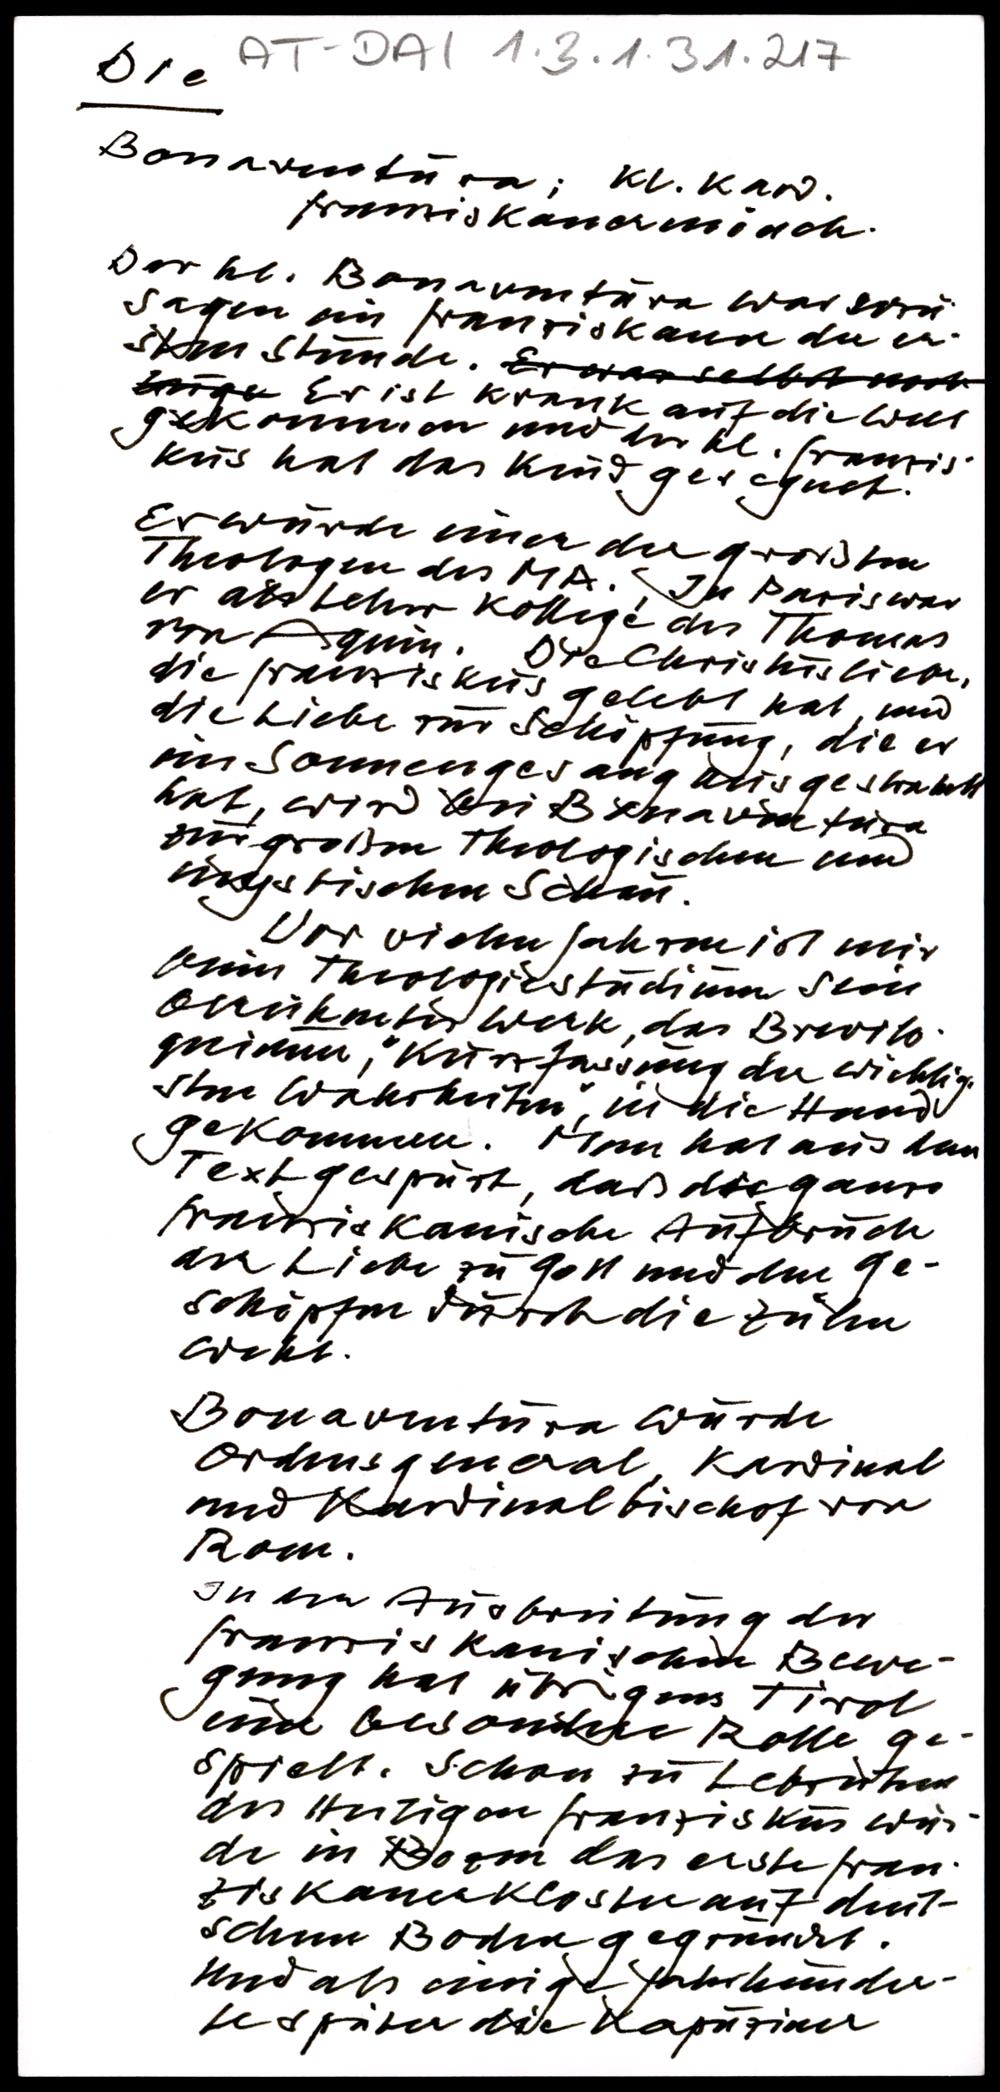 AT-DAI 1.3.1.31.217
Die
Bonaventura; Kl. Kard.
Franziskanermönch.
Der hl. Bonaventura war sozu
sagen ein Franziskaner der er-
sten Stunde. Er war selbst noch
Er ist krank auf die Welt
gekommen und der hl. Franzis-
kus hat das Kind gesegnet.
Er wurde einer der größten
Theologen des MA. In Paris war
er als Lehrer Kollege des Thomas
von Aquin. Die Christusliebe,
die Franziskus gelebt hat, und
die Liebe zur Schöpfung, die er
im Sonnengesang ausgestrahlt
hat, wird bei Bonaventura
zur großen theologischen und
mystischen Schau.
Vor vielen Jahren ist mir
beim Theologiestudium sein
berühmtes Werk, das Brevilo-
quium, "Kurzfassung der wichtig-
sten Wahrheiten", in die Hand
gekommen. Man hat aus dem
Text gespürt, daß der ganze
franziskanische Aufbruch
der Liebe zu Gott und den Ge-
schöpfen durch die Zeilen
weht.
Bonaventura wurde
Ordensgeneral, Kardinal
und Kardinalbischof von
Rom.
In der Ausbreitung der
franziskanischen Bewe-
gung hat übrigens Tirol
eine besondere Rolle ge-
spielt. Schon zu Lebzeiten
des Heiligen Franziskus wur-
de in Bozen das erste Fran-
ziskanerkloster auf deut-
schem Boden gegründet.
Und als einige Jahrhunder-
te später die Kapuziner